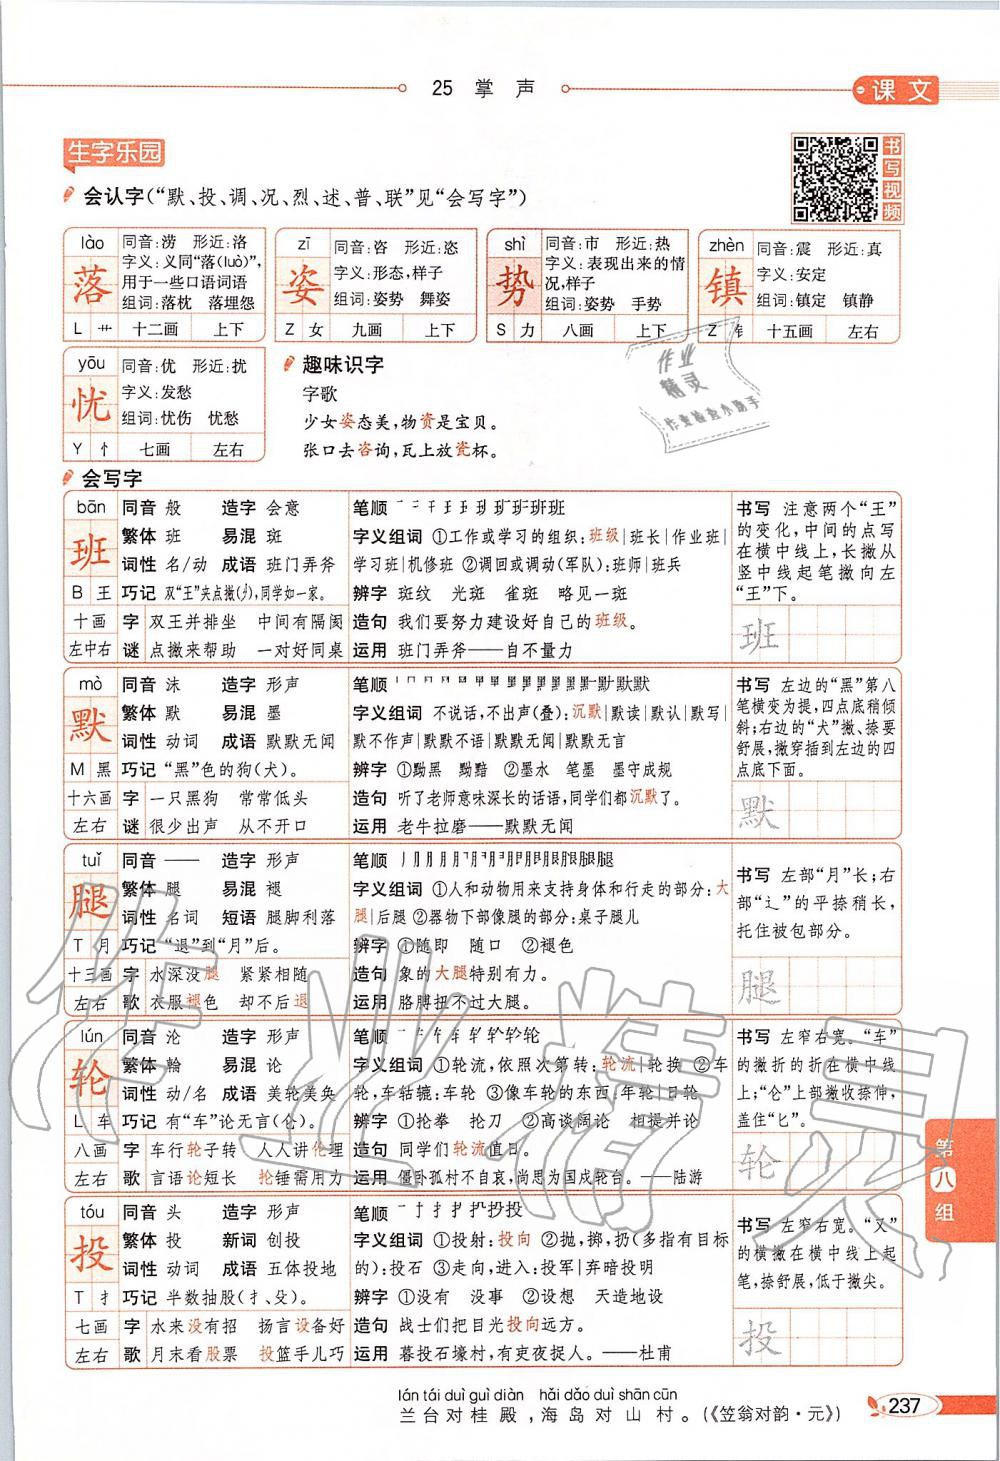 25 掌 声
课文
生字乐园
书写视频
会认字(“默、投、调、况、烈、述、普、联”见“会写字”)
lào
落
同音:涝 形近:洛
字义:义同“落(luò)”,
用于一些口语词语
组词:落枕 落埋怨
L 艹 十二画 上下
zī
姿
同音:咨 形近:恣
字义:形态,样子
组词:姿势 舞姿
Z 女 九画 上下
shì
势
同音:市 形近:热
字义:表现出来的情
况,样子
组词:姿势 手势
S 力 八画 上下
zhèn
镇
同音:震 形近:真
字义:安定
组词:镇定 镇静
Z 钅 十五画 左右
yōu
忧
同音:优 形近:扰
字义:发愁
组词:忧伤 忧愁
Y 忄 七画 左右
趣味识字
字歌
少女姿态美,物资是宝贝。
张口去咨询,瓦上放瓷杯。
会写字
bān
班
B 王
十画
左中右
同音 般 造字 会意
繁体 班 易混 斑
词性 名/动 成语 班门弄斧
巧记 双“王”夹点撇(丿),同学如一家。
字 双王并排坐 中间有隔阂
谜 点撇来帮助 一对好同桌
笔顺
字义组词 ①工作或学习的组织:班级|班长|作业班|
学习班|机修班 ②调回或调动(军队):班师|班兵
辨字 斑纹 光斑 雀斑 略见一斑
造句 我们要努力建设好自己的班级。
运用 班门弄斧——自不量力
书写 注意两个“王”
的变化,中间的点写
在横中线上,长撇从
竖中线起笔撇向左
“王”下。
班
mò
默
M 黑
十六画
左右
同音 沫 造字 形声
繁体 默 易混 墨
词性 动词 成语 默默无闻
巧记 “黑”色的狗(犬)。
字 一只黑狗 常常低头
谜 很少出声 从不开口
笔顺
字义组词 不说话,不出声(叠):沉默|默读|默认|默写|
默不作声|默默不语|默默无闻|默默无言
辨字 ①黝黑 黝黯 ②墨水 笔墨 墨守成规
造句 听了老师意味深长的话语,同学们都沉默了。
运用 老牛拉磨——默默无闻
书写 左边的“黑”第八
笔横变为提,四点底稍倾
斜;右边的“犬”撇、捺要
舒展,撇穿插到左边的四
点底下面。
默
tuǐ
腿
T 月
十三画
左右
同音 —— 造字 形声
繁体 腿 易混 褪
词性 名词 短语 腿脚利落
巧记 “退”到“月”后。
字 水深没腿 紧紧相随
歌 衣服褪色 却不后退
笔顺
字义组词 ①人和动物用来支持身体和行走的部分:大
腿|后腿 ②器物下部像腿的部分:桌子腿儿
辨字 ①随即 随口 ②褪色
造句 象的大腿特别有力。
运用 胳膊扭不过大腿。
书写 左部“月”长;右
部“辶”的平捺稍长,
托住被包部分。
腿
lún
轮
L 车
八画
左右
同音 沦 造字 形声
繁体 輪 易混 论
词性 动/名 成语 美轮美奂
巧记 有“车”论无言(仑)。
字 车行轮子转 人人讲伦理
歌 言语论短长 抡锤需用力
笔顺
字义组词 ①轮流,依照次第转:轮流|轮换 ②车
轮,车轱辘:车轮 ③像车轮的东西|年轮|日轮
辨字 ①抡拳 抡刀 ②高谈阔论 相提并论
造句 同学们轮流值日。
运用 僵卧孤村不自哀,尚思为国戍轮台。——陆游
书写 左窄右宽。“车”
的撇折的折在横中线
上;“仑”上部撇收捺伸,
盖住“匕”。
轮
tóu
投
T 扌
七画
左右
同音 头 造字 形声
繁体 投 新词 创投
词性 动词 成语 五体投地
巧记 半数抽股(扌、殳)。
字 水来没有招 扬言设备好
歌 月末看股票 投篮手儿巧
笔顺
字义组词 ①投射:投向 ②抛,掷,扔(多指有目标
的):投石 ③走向,进入:投军|弃暗投明
辨字 ①没有 没事 ②设想 天造地设
造句 战士们把目光投向远方。
运用 暮投石壕村,有吏夜捉人。——杜甫
书写 左窄右宽。“又”
的横撇在横中线上起
笔,捺舒展,低于撇尖。
投
第八组
lán tái duì guì diàn hǎi dǎo duì shān cūn
兰台对桂殿,海岛对山村。(《笠翁对韵·元》)
237
作业
精灵
作业检查小助手
作业精灵